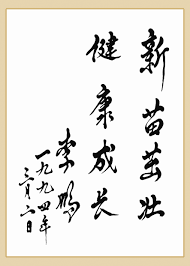 新苗茁壮
健康成长
李鹏
一九九四年
三月六日